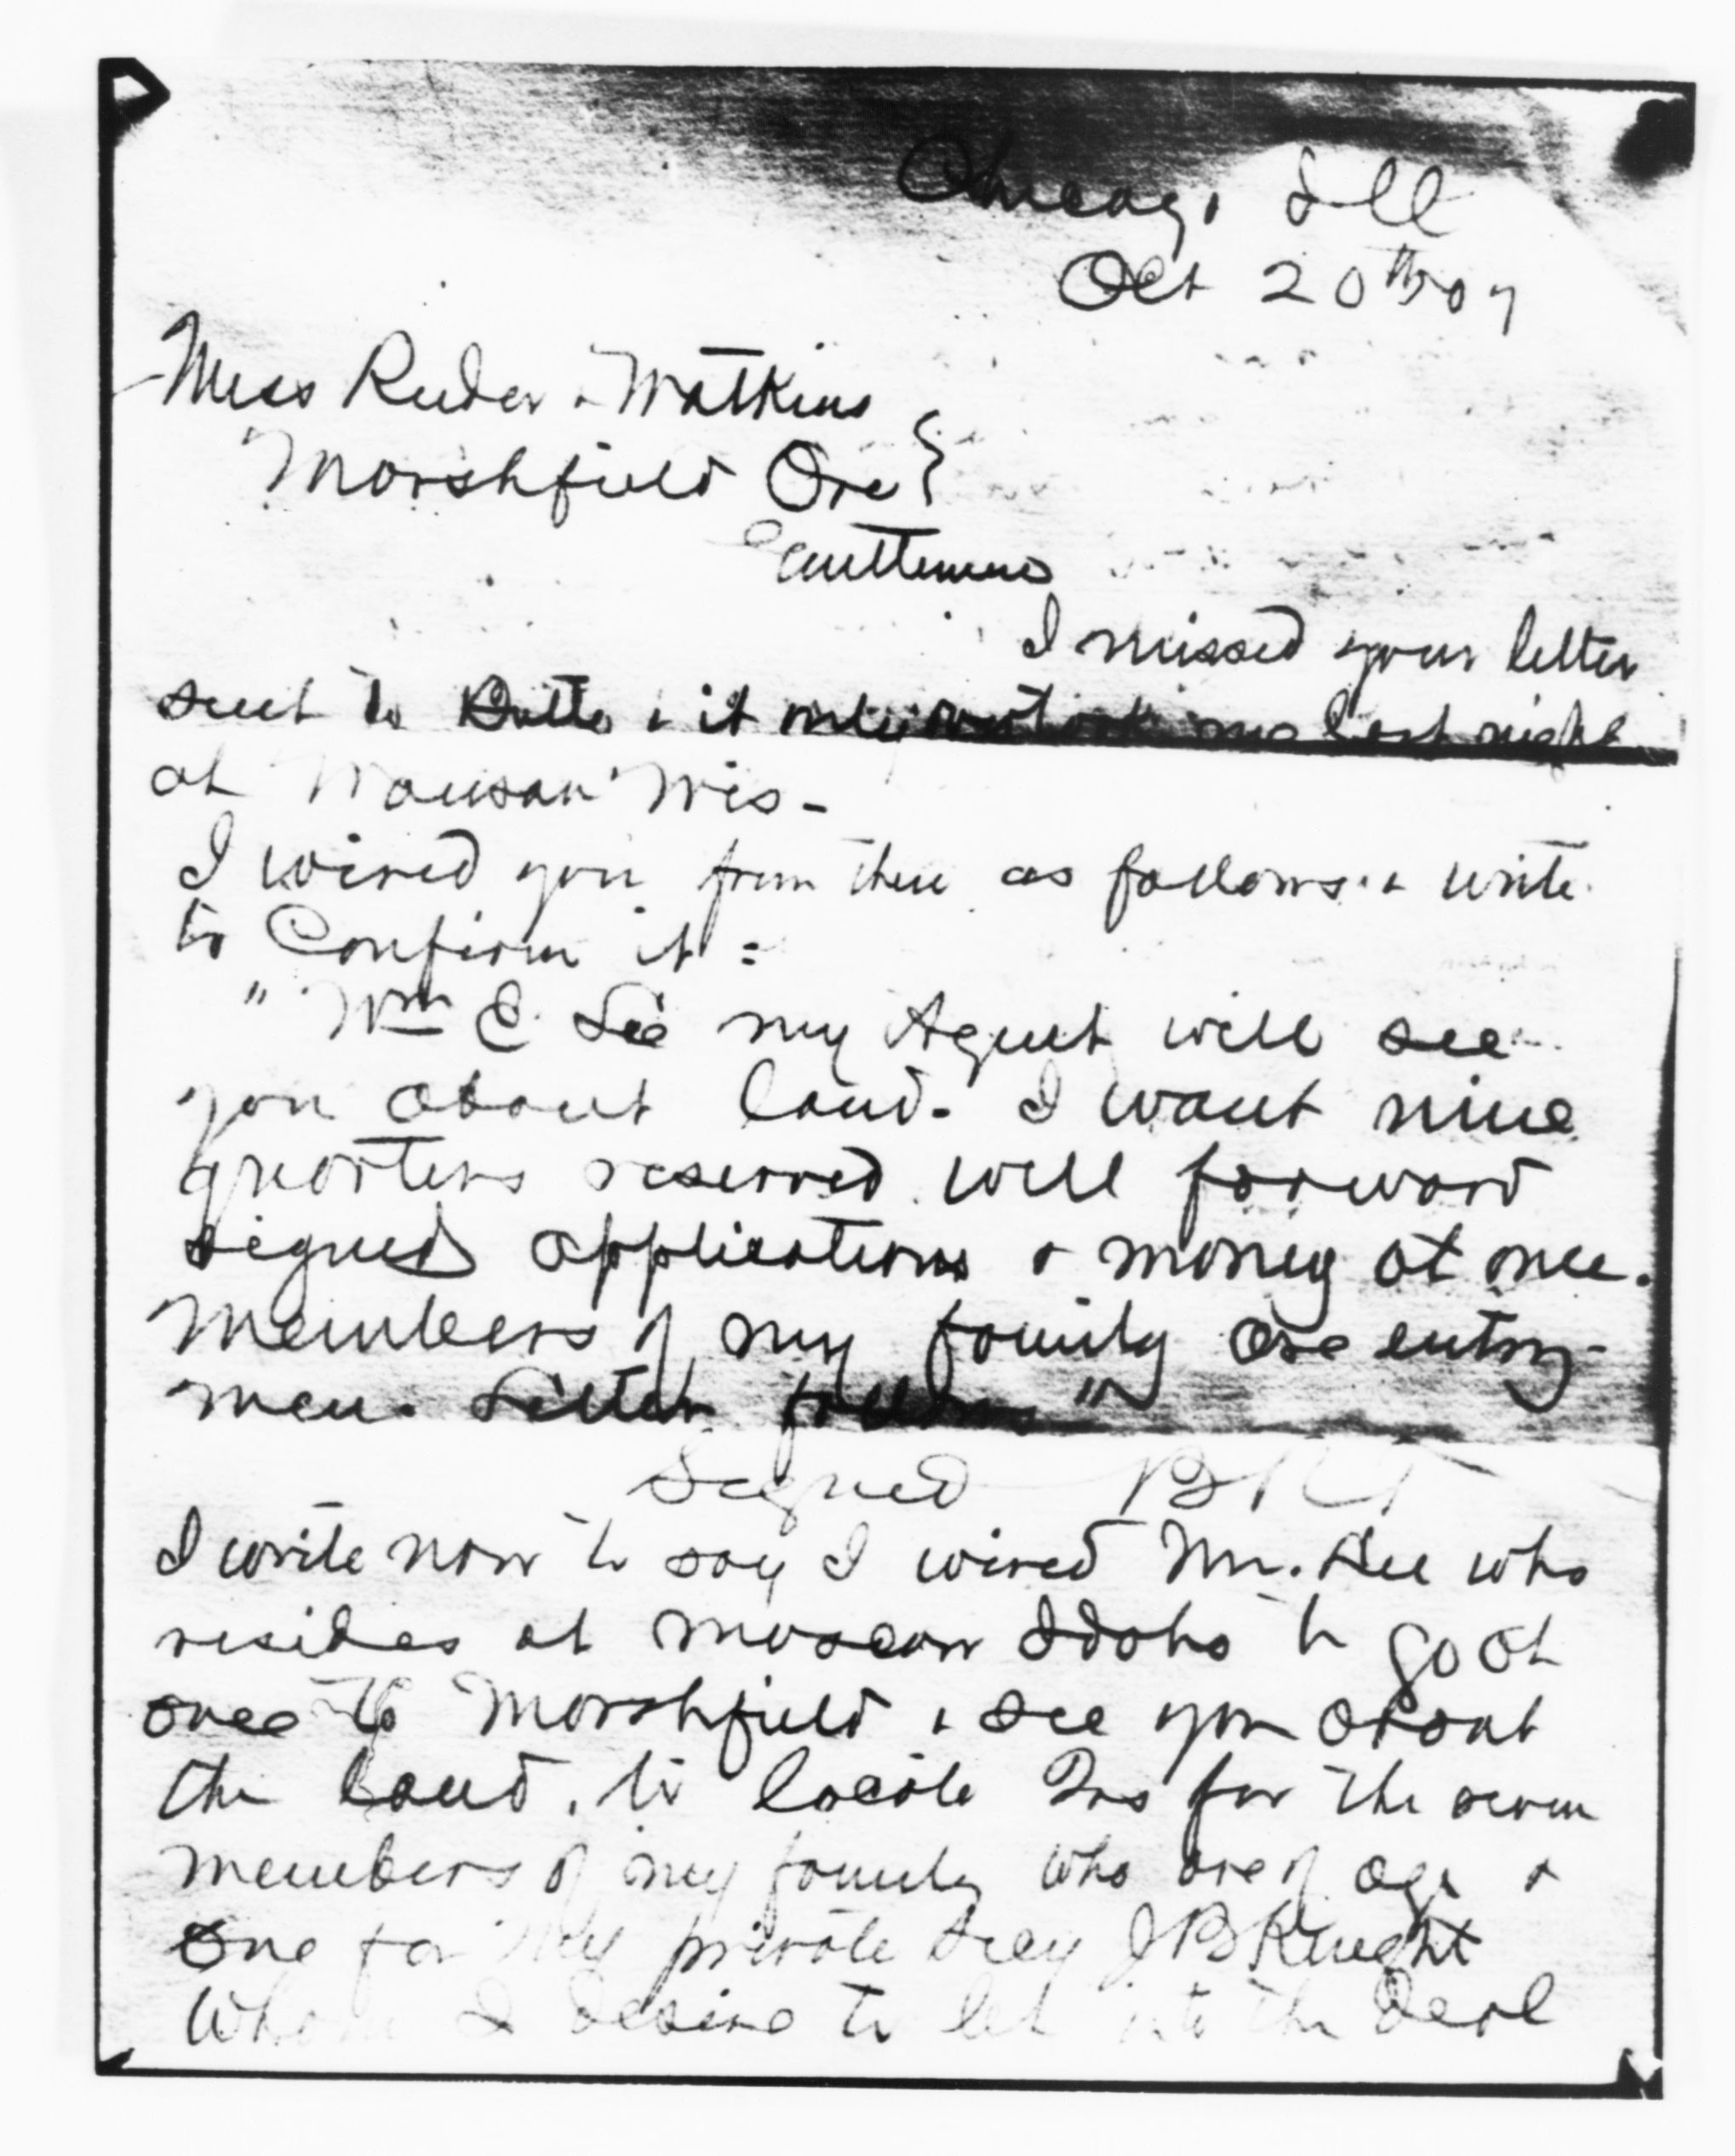 Chicago Ill
Oct 20th 07
Mess Reeder & Watkins
Marshfield Ore
Gentlemen
I missed your letter
sent to Butte & it only overtook me last night
at Wausau Wis -
I wired you from there as follows & write
to Confirm it :
" Wm E Lee my Agent will see
you about land. I want nine
quarters reserved will forward
signed applications & money at once.
Members of my family are entry-
men. Letter follows "
Signed
I write now to say I wired Mr. Lee who
resides at Moscow Idaho to go at
once to Marshfield & see you about
the land, to locate for the
members of my family who are of age &
one for My private Secy J B Knight
Whom I desire to let into the deal